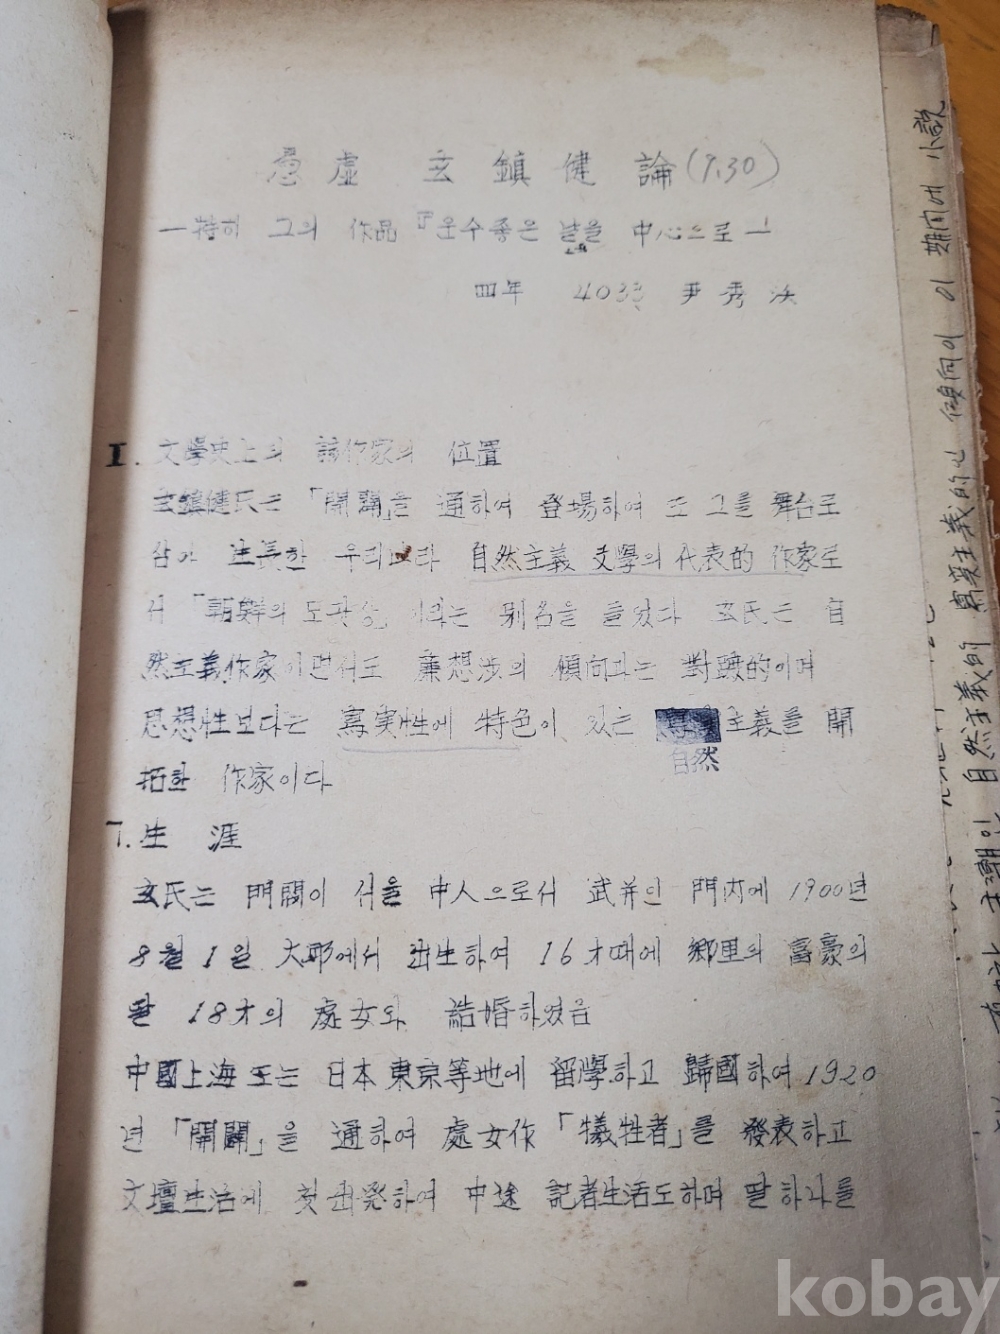 憑虛 玄鎭健 論(9.30)
—特히 그의 作品『운수좋은 날을 中心으로—
四年 4033 尹秀
I. 文學史上의 該作家의 位置
玄鎭健氏는 「開闢」을 通하여 登場하여 또 그를 舞台로
삼아 生長한 우리나라 自然主義 文學의 代表的 作家로
서 「朝鮮의 모파상」이라는 別名을 들었다 玄氏는 自
然主義作家이면서도 廉想涉의 傾向과는 對蹠的이며
思想性보다는 寫実性에 特色이 있는 主義를 開
自然
拓한 作家이다
7. 生 涯
玄氏는 門閥이 서울 中人으로서 武弁인 門內에 1900년
8월 1일 大邱에서 出生하여 16才때에 鄕里의 富豪의
딸 18才의 處女와 結婚하였음
中國上海 또는 日本 東京等地에 留學하고 歸國하여 1920
년 「開闢」을 通하여 處女作 「犧牲者」를 發表하고
文壇生活에 첫出発하여 中途 記者生活도하며 딸하나를
小說
期間에
이
傾向이
寫實主義的인
自然主義的
主潮인
kobay